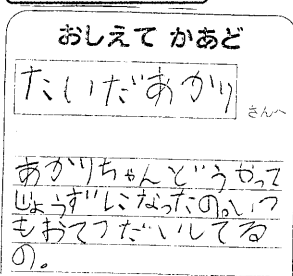 おしえて かあど
たいだあかり
さんへ
あかりちゃんどうやって
じょうずになったの。いつ
もおてつだいしてる
の。